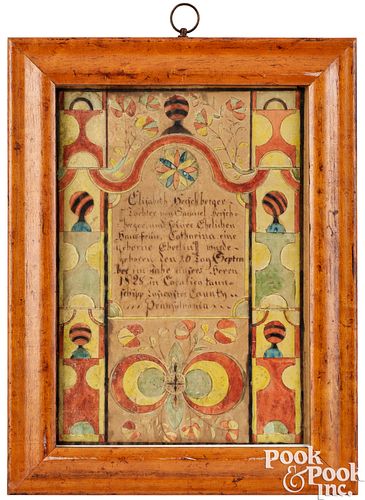 Elisabeth Herschberger
Tochter von Samuel Hersch-
berger und seiner Ehelichen
Hausfrau, Catharina eine
geborne Eberlin wurde
geboren den 20 Tag Septem
ber im Jahr unsers Herrn
1828 in Cocalico Taun-
schipp Lancaster County
Pennsylvania
POOK
& POOK
INC.